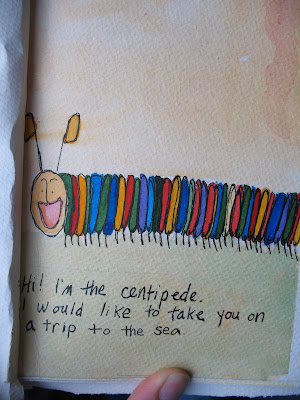 Hi! I'm the centipede.
I would like to take you on
a trip to the sea.